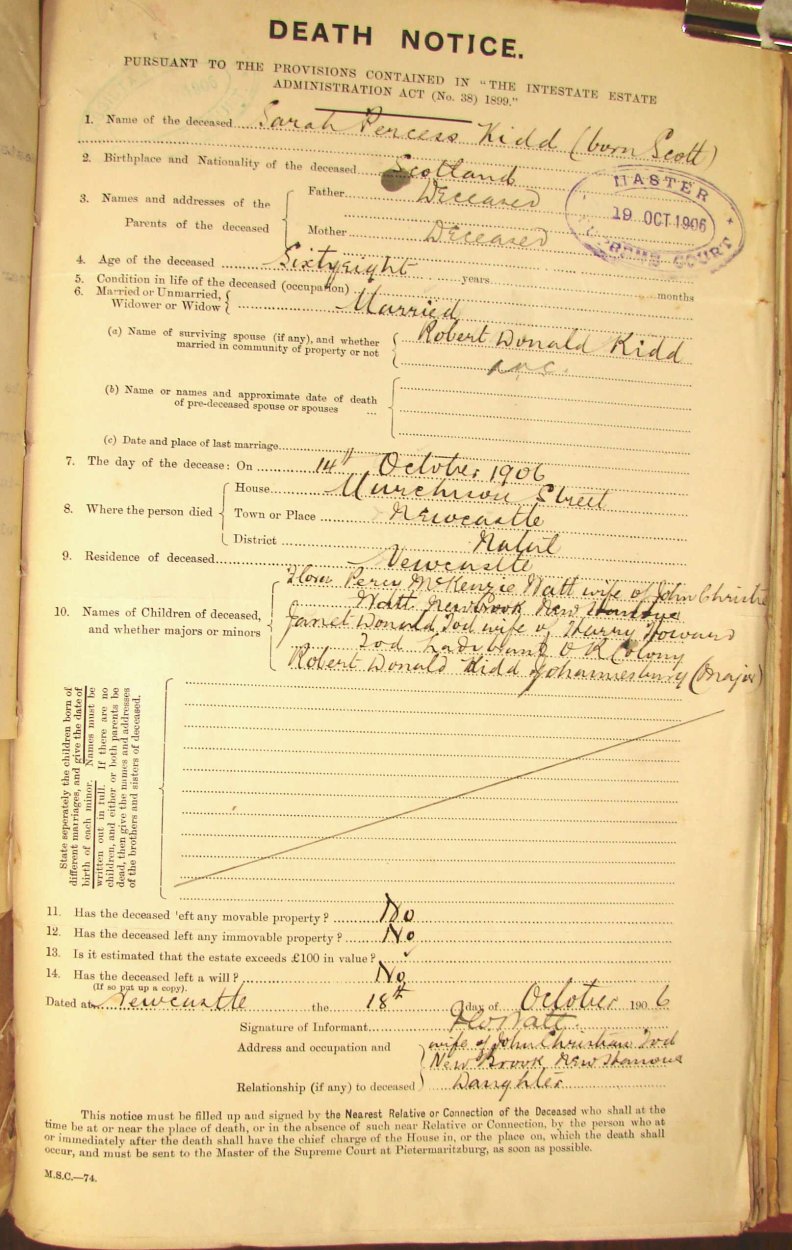 DEATH NOTICE.
PURSUANT TO THE PROVISIONS CONTAINED IN "THE INTESTATE ESTATE
ADMINISTRATION ACT (No. 38) 1899."
1. Name of the deceased Sarah Percess Kidd (born Scott)
2. Birthplace and Nationality of the deceased Scotland
MASTER
19 OCT 1906
SUPREME COURT
3. Names and addresses of the Parents of the deceased
Father Deceased
Mother Deceased
4. Age of the deceased Sixtyeight years months
5. Condition in life of the deceased (occupation)
6. Married or Unmarried, Widower or Widow Married
(a) Name of surviving spouse (if any), and whether Robert Donald Kidd
married in community of property or not
(b) Name or names and approximate date of death
of pre-deceased spouse or spouses ...
(c) Date and place of last marriage
7. The day of the decease: On 14th October 1906
House Murchison Street
8. Where the person died Town or Place Newcastle
District Natal
9. Residence of deceased Newcastle
Flora Percy McKenzie Watt wife of John Christie
10. Names of Children of deceased, Watt New Brook New
and whether majors or minors Janet Donald Tod wife of Harry Howard
Tod Ladybrand O R Colony
Robert Donald Kidd Johannesburg (Major)
State seperately the children born of
different marriages, and give the date of
birth of each minor. Names must be
written out in full. If there are no
children, and either or both parents be
dead, then give the names and addresses
of the brothers and sisters of deceased.
11. Has the deceased 'eft any movable property? No
12. Has the deceased left any immovable property? No
13. Is it estimated that the estate exceeds £100 in value?
14. Has the deceased left a will? No
(If so put up a copy).
Dated at Newcastle the 18th day of October 1906
Signature of Informant Flo Watt.
Address and occupation and wife of John Christian Tod
New Brook New
Relationship (if any) to deceased Daughter
This notice must be filled up and signed by the Nearest Relative or Connection of the Deceased who shall at the
time be at or near the place of death, or in the absence of such near Relative or Connection, by the person who at
or immediately after the death shall have the chief charge of the House in, or the place on, which the death shall
occur, and must be sent to the Master of the Supreme Court at Pietermaritzburg, as soon as possible.
M.S.C.—74.